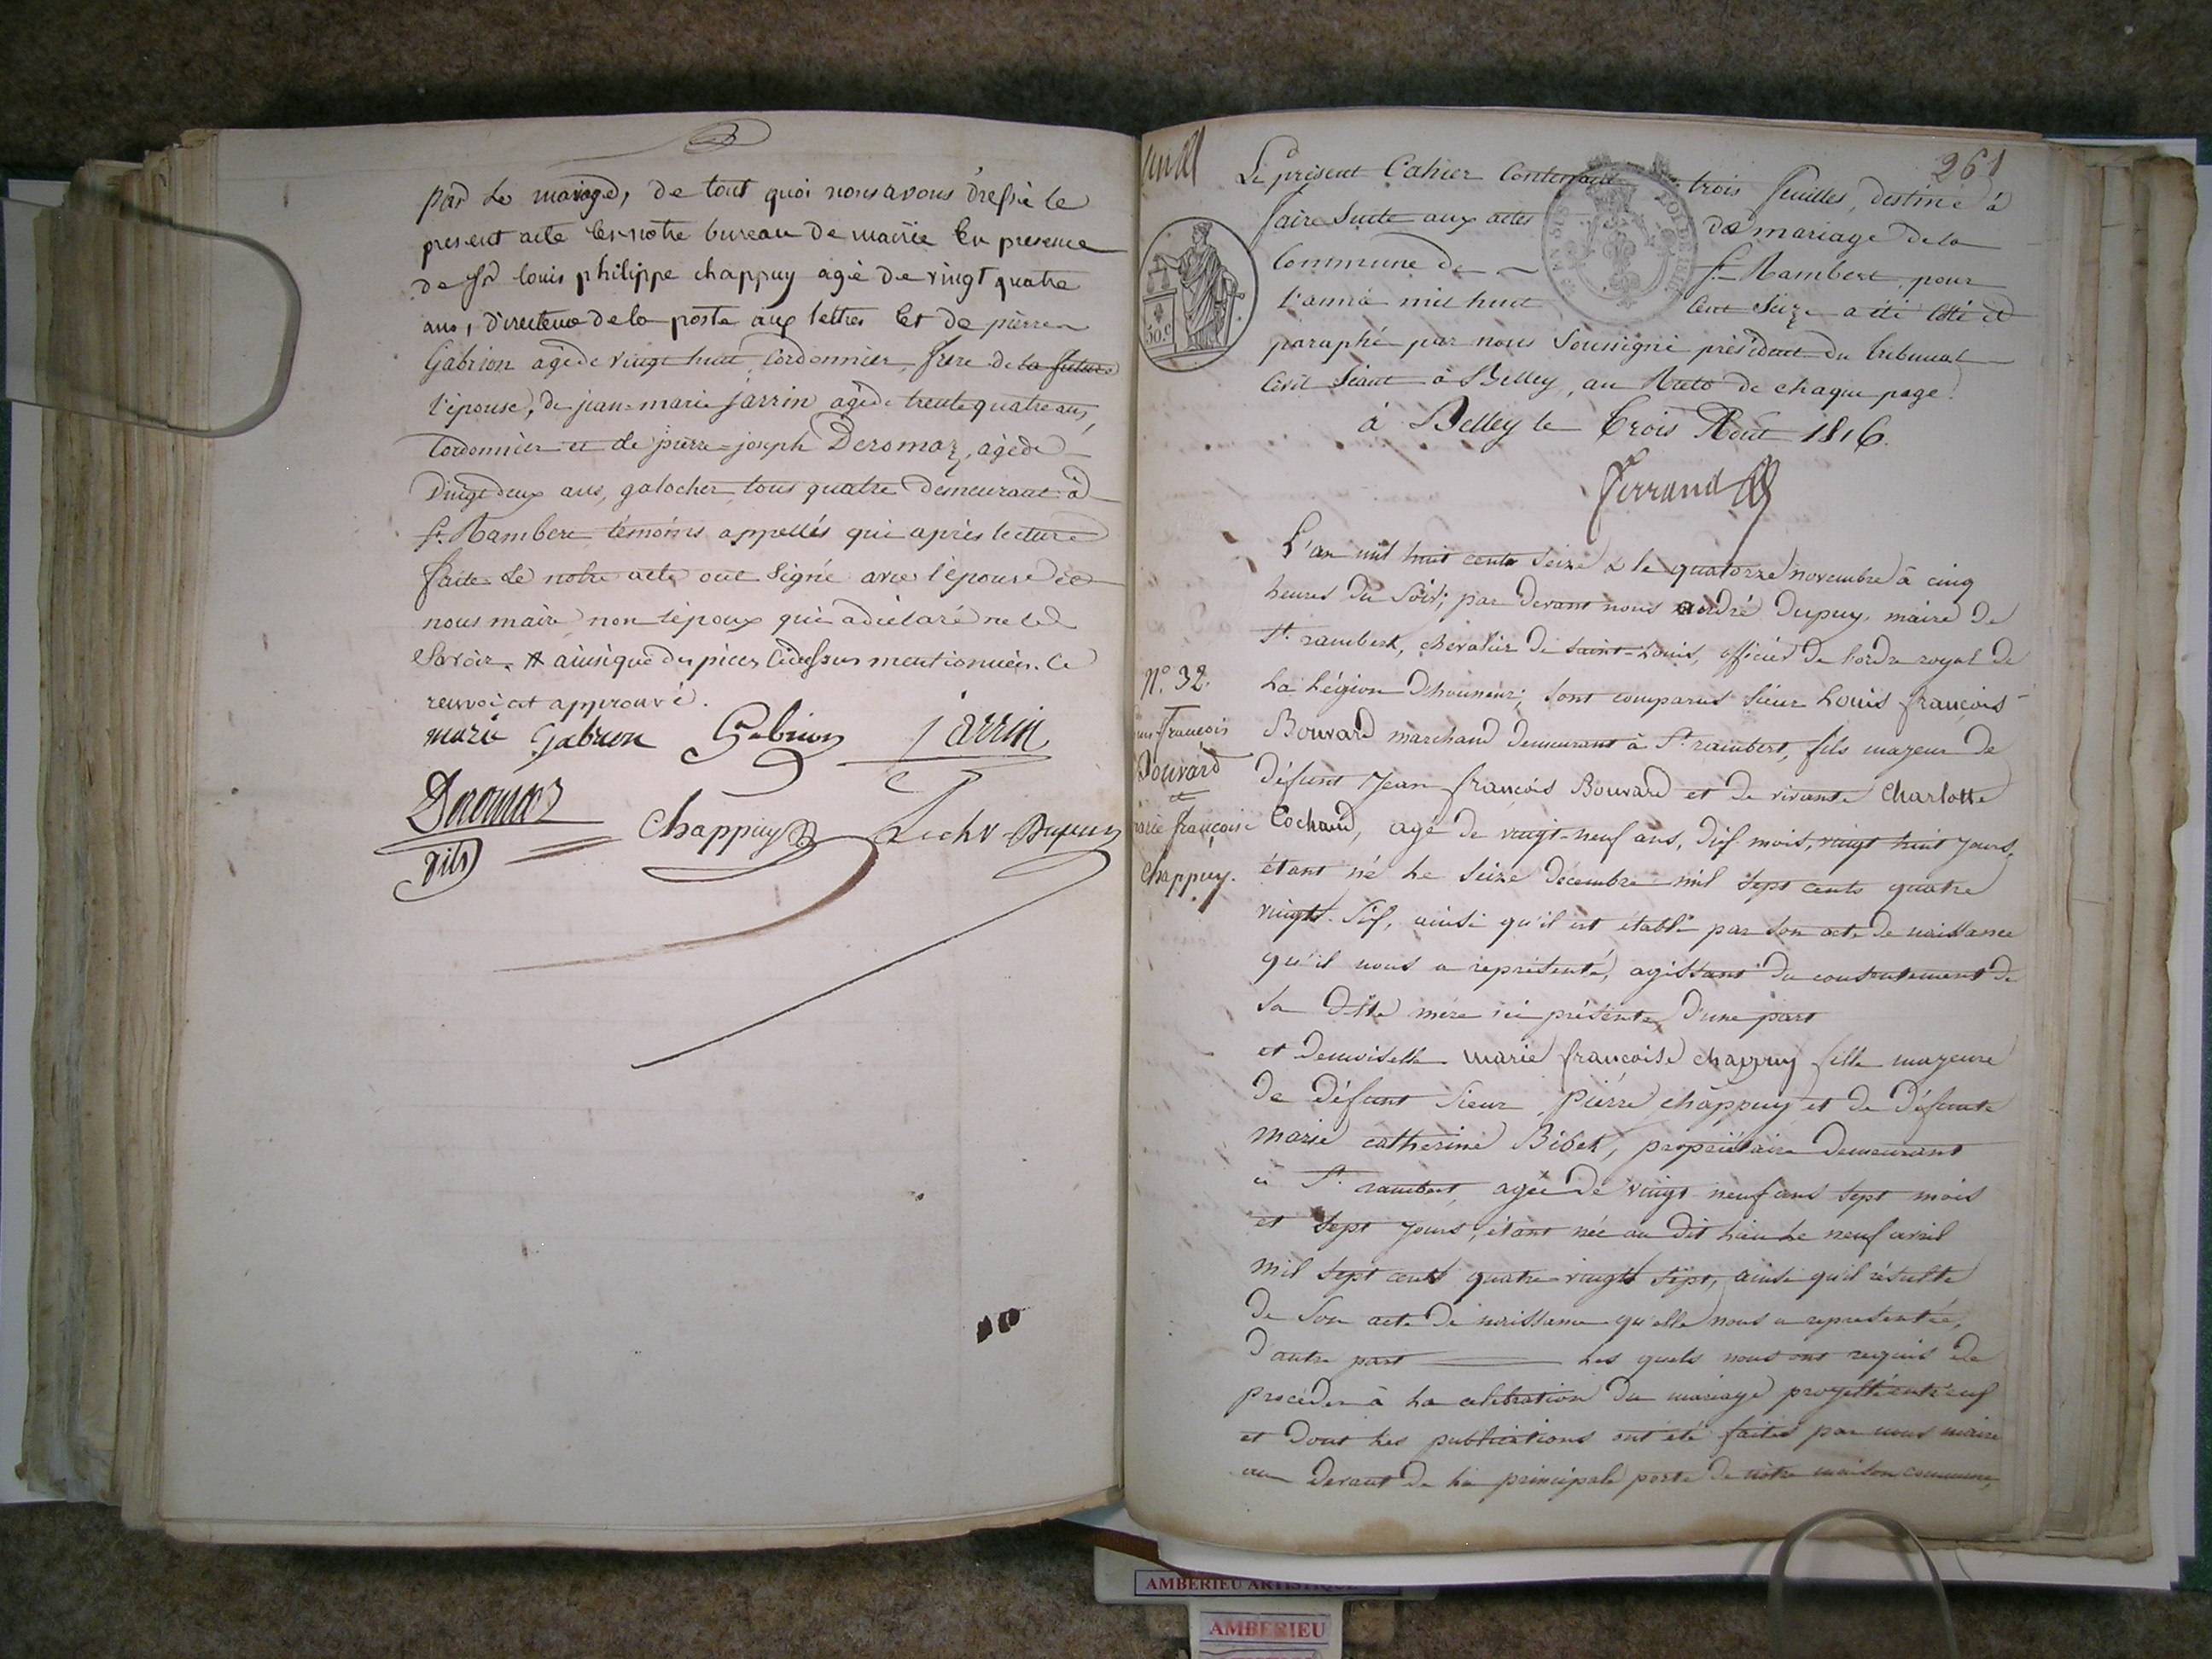 par le mariage, de tout quoi nous avons dressé le
present acte en notre bureau de mairie en presence
de Sr louis philippe chappuy agé de vingt quatre
ans, directeur de la poste aux lettres et de pierre
Gabrion agé de vingt huit, cordonnier, frere de la future
l'épouse, de jean-marie jarrin agé de trente quatre ans,
cordonnier et de pierre-joseph Deromaz, agé de
vingt deux ans, galocher tous quatre demeurant à
St. Rambert témoins appellés qui après lecture
faite de notre acte ont signé avec l'épouse et
nous maire non l'époux qui a déclaré ne le
savoir. # ainsique des pièces cidessus mentionnées. Ce
renvoi est approuvé.
marie Gabrion Gabrion jarrin
Deromaz
fils
Chappuy Dupuy
261
Le présent Cahier Contenant trois feuilles, destiné à
faire Suite aux actes de mariage de la
Commune de St Rambert, pour
l'année mil huit cent Seize a été Coté et
paraphé par nous Soussigné président du tribunal
Civil Séant à Belley, au Recto de chaque page.
à Belley le trois Août 1816.
Ferrand
50.c
L'an mil huit cents seize & le quatorze novembre à cinq
heures du soir; par devant nous andré Dupuy, maire de
St. rambert, chevalier de saint-Louis, officier de l'ordre royal de
La Légion d'honneur; sont comparus sieur Louis françois
Bouvard marchand demeurant à St. rambert, fils majeur de
défunt Jean françois Bouvard et de vivante Charlotte
Cochand, agé de vingt-neuf ans, dix mois, vingt huit jours,
étant né Le seize décembre mil sept cents quatre
vingts-six, ainsi qu'il est établi par son acte de naissance
qu'il nous a représenté, agissant du consentement de
sa ditte mère ici présente, d'une part
N°. 32.
françois
Bouvard
et
marie françoise
Chappuy.
et demoiselle marie françoise chappuy fille majeure
de défunt sieur Pierre chappuy et de défunte
marie catherine Bibet, propriétaire demeurant
à St. rambert, agée de vingt neuf ans sept mois
et sept jours, étant née au dit Lieu Le neuf avril
mil sept cents quatre-vingts sept, ainsi qu'il résulte
de son acte de naissance qu'elle nous a representée,
d'autre part Les quels nous ont requis de
procéder à La célébration du mariage projetté entr'eux
et dont Les publications ont été faites par nous maire
au devant de La principale porte de notre maison commune,
AMBERIEU ARTISTIQUE
AMBERIEU